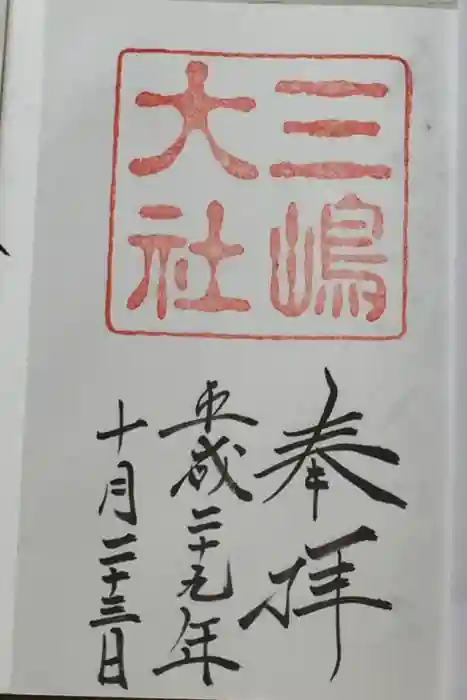 三嶋
大社
奉拝
平成二十九年
十月二十三日